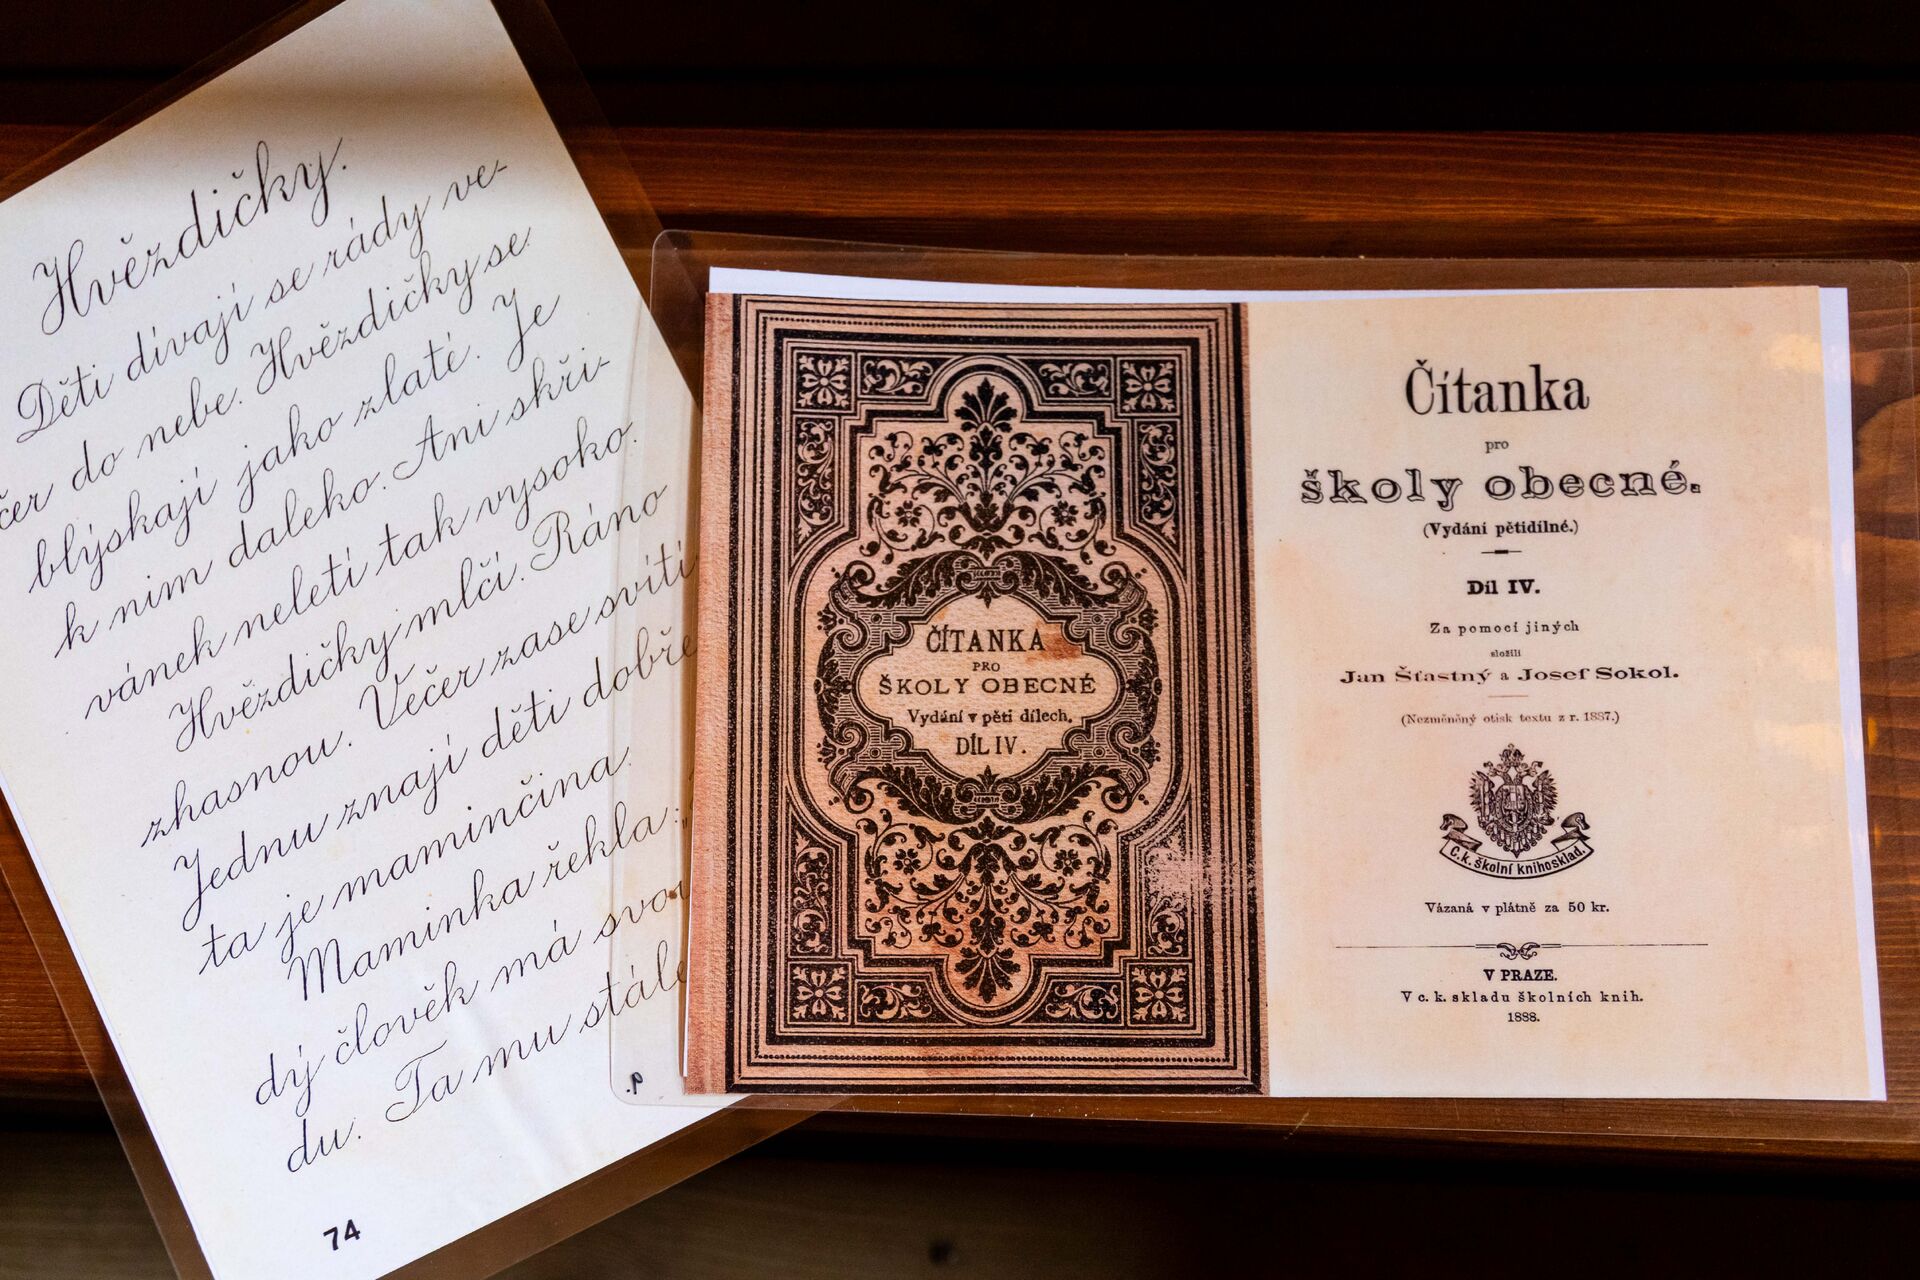 Hvězdičky.
Děti dívají se rády ve-
čer do nebe. Hvězdičky se
blýskají jako zlaté. Je
k nim daleko. Ani skři-
vánek neletí tak vysoko.
Hvězdičky mlčí. Ráno
zhasnou. Večer zase svítí
Jednu znají děti dobře
ta je maminčina.
Maminka řekla: „
dý člověk má svou
du. Ta mu stále
74
ČÍTANKA
PRO
ŠKOLY OBECNÉ
Vydání v pěti dílech.
DÍL IV.
Čítanka
pro
školy obecné.
(Vydání pětidílné.)
Díl IV.
Za pomoci jiných
složili
Jan Šťastný a Josef Sokol.
(Nezměněný otisk textu z r. 1887.)
C. k. školní knihosklad.
Vázaná v plátně za 50 kr.
V PRAZE.
V c. k. skladu školních knih.
1888.